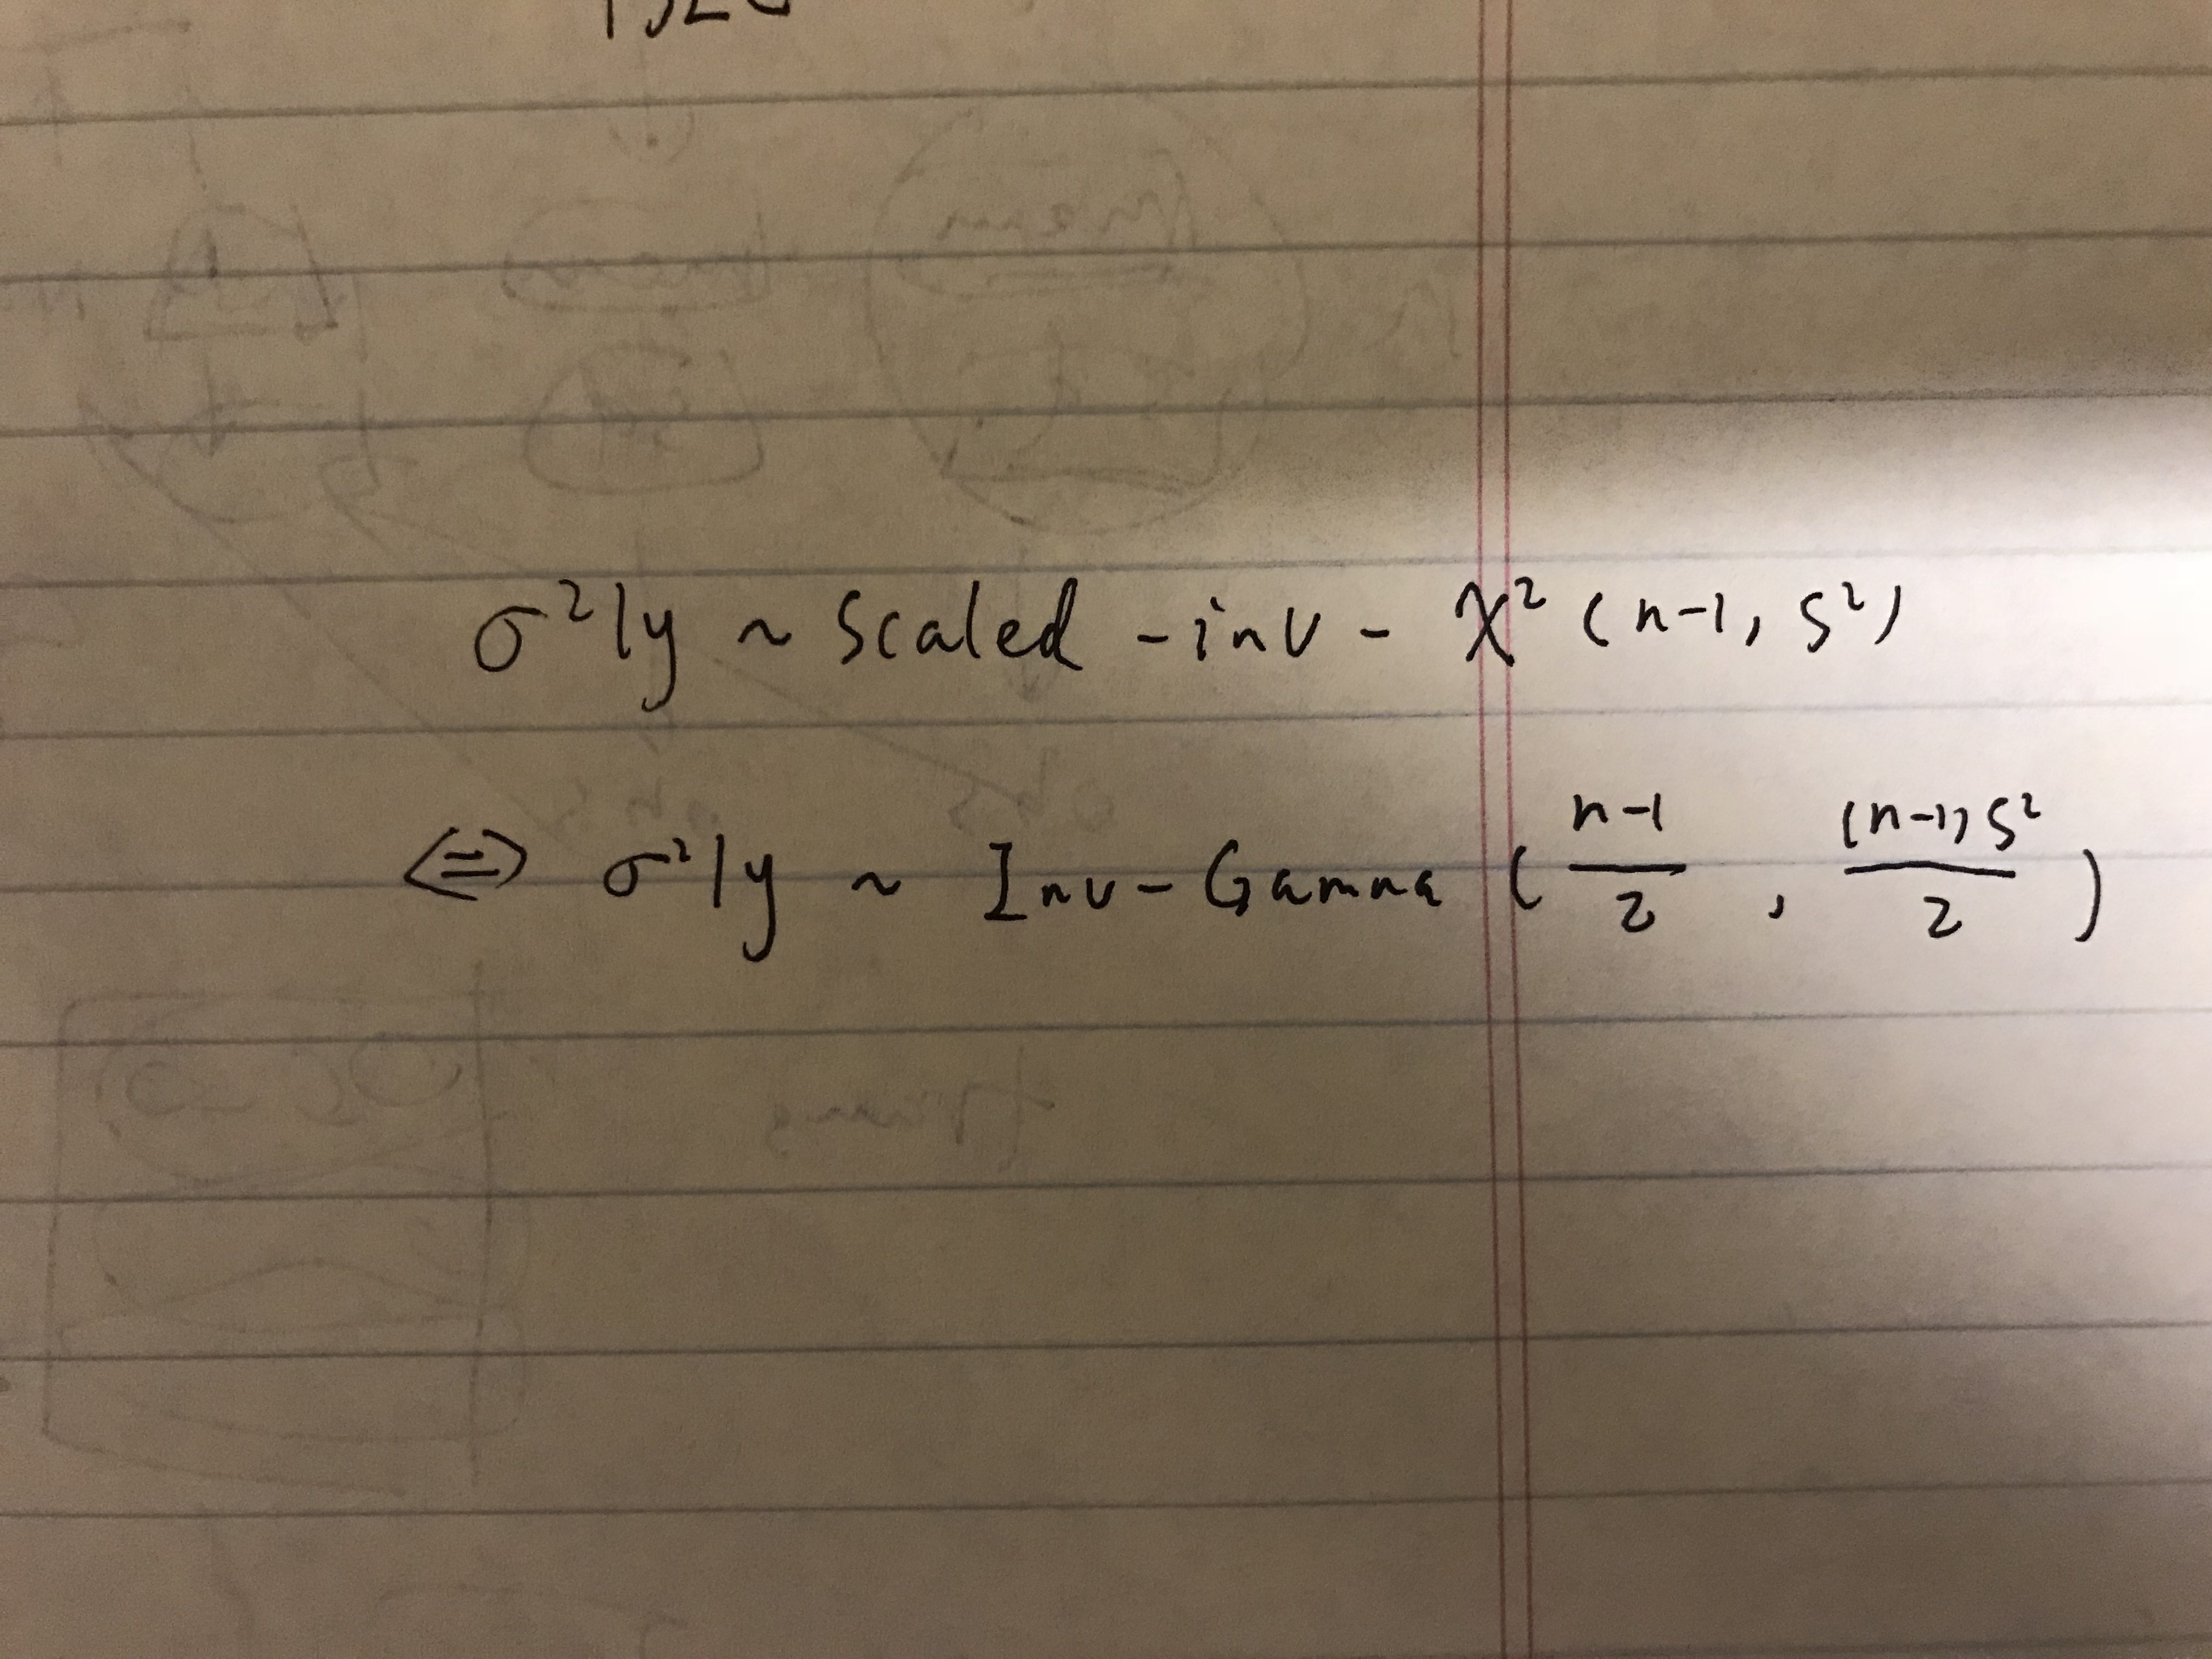 σ²|y ~ Scaled - inv - χ² (n-1, s²)
⇔ σ²|y ~ Inv - Gamma ( n-1/2 , (n-1)s²/2 )